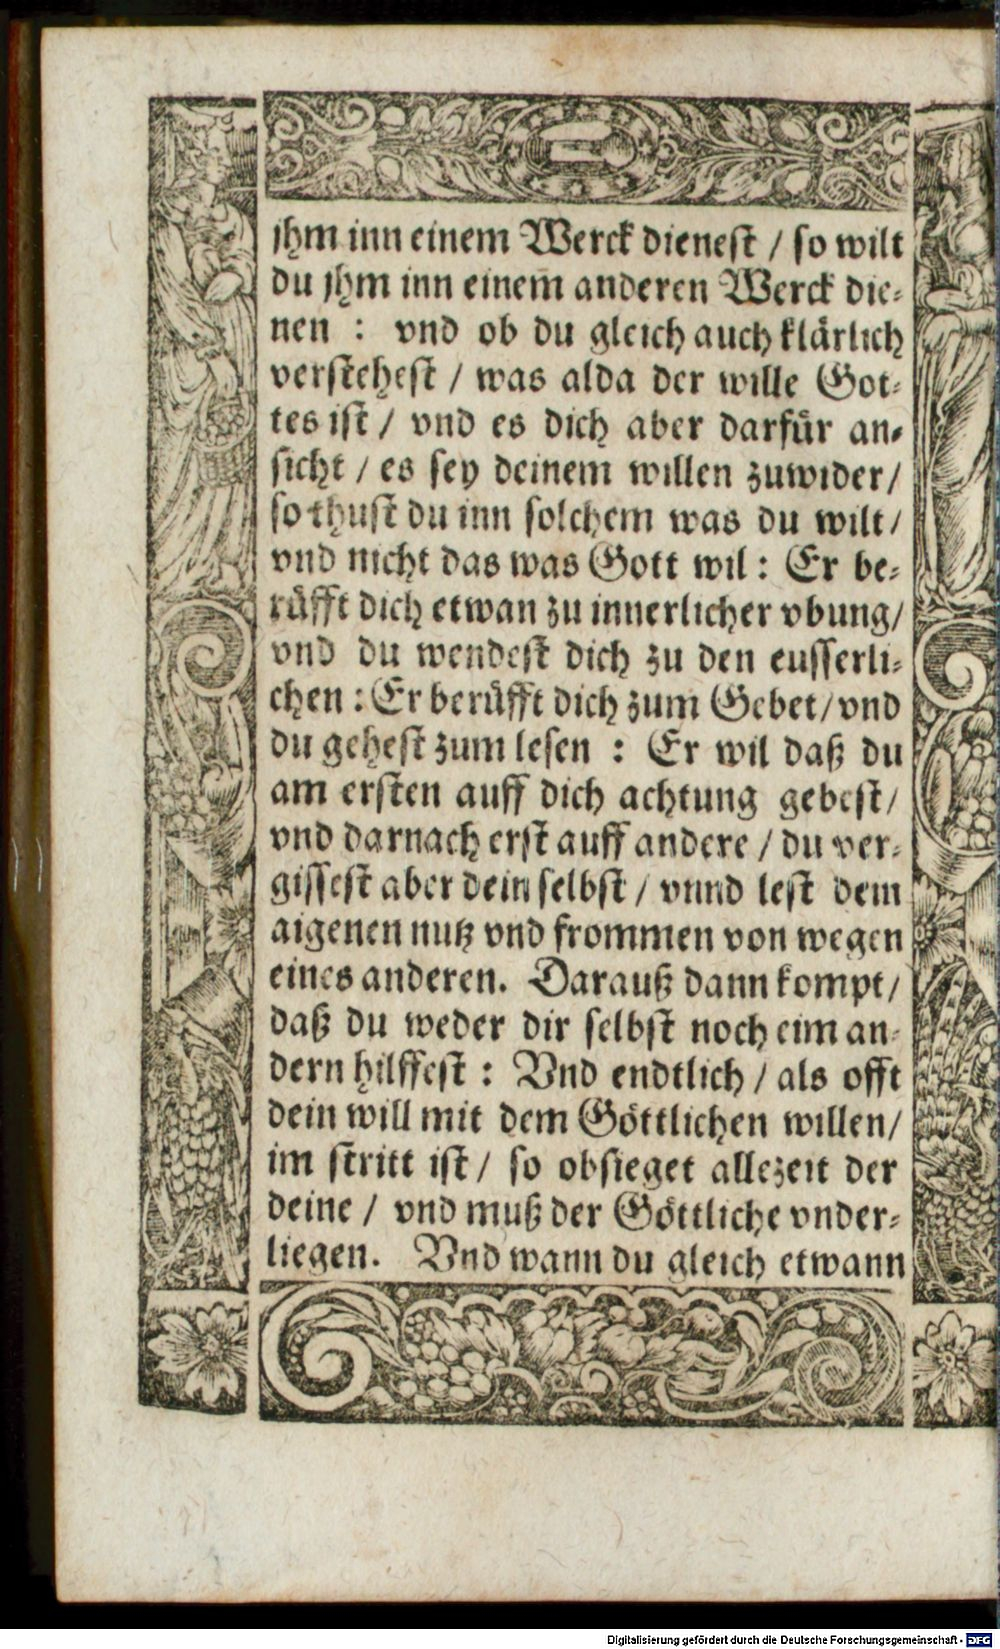 jhm inn einem Werck dienest / so wilt
du jhm inn einem̃ anderen Werck die⸗
nen : vnd ob du gleich auch klärlich
verstehest / was alda der wille Got⸗
tes ist / vnd es dich aber darfür an⸗
sicht / es sey deinem willen zuwider /
so thust du inn solchem was du wilt /
vnd nicht das was Gott wil : Er be⸗
rüfft dich etwan zu innerlicher vbung /
vnd du wendest dich zu den eusserli⸗
chen : Er berüfft dich zum Gebet / vnd
du gehest zum lesen : Er wil daß du
am ersten auff dich achtung gebest /
vnd darnach erst auff andere / du ver⸗
gissest aber dein selbst / vnnd lest dem
aigenen nutz vnd frommen von wegen
eines anderen. Darauß dann kompt /
daß du weder dir selbst noch eim an⸗
dern hilffest : Vnd endtlich / als offt
dein will mit dem Göttlichen willen /
im stritt ist / so obsieget allezeit der
deine / vnd muß der Göttliche vnder⸗
liegen. Vnd wann du gleich etwann
Digitalisierung gefördert durch die Deutsche Forschungsgemeinschaft - DFG